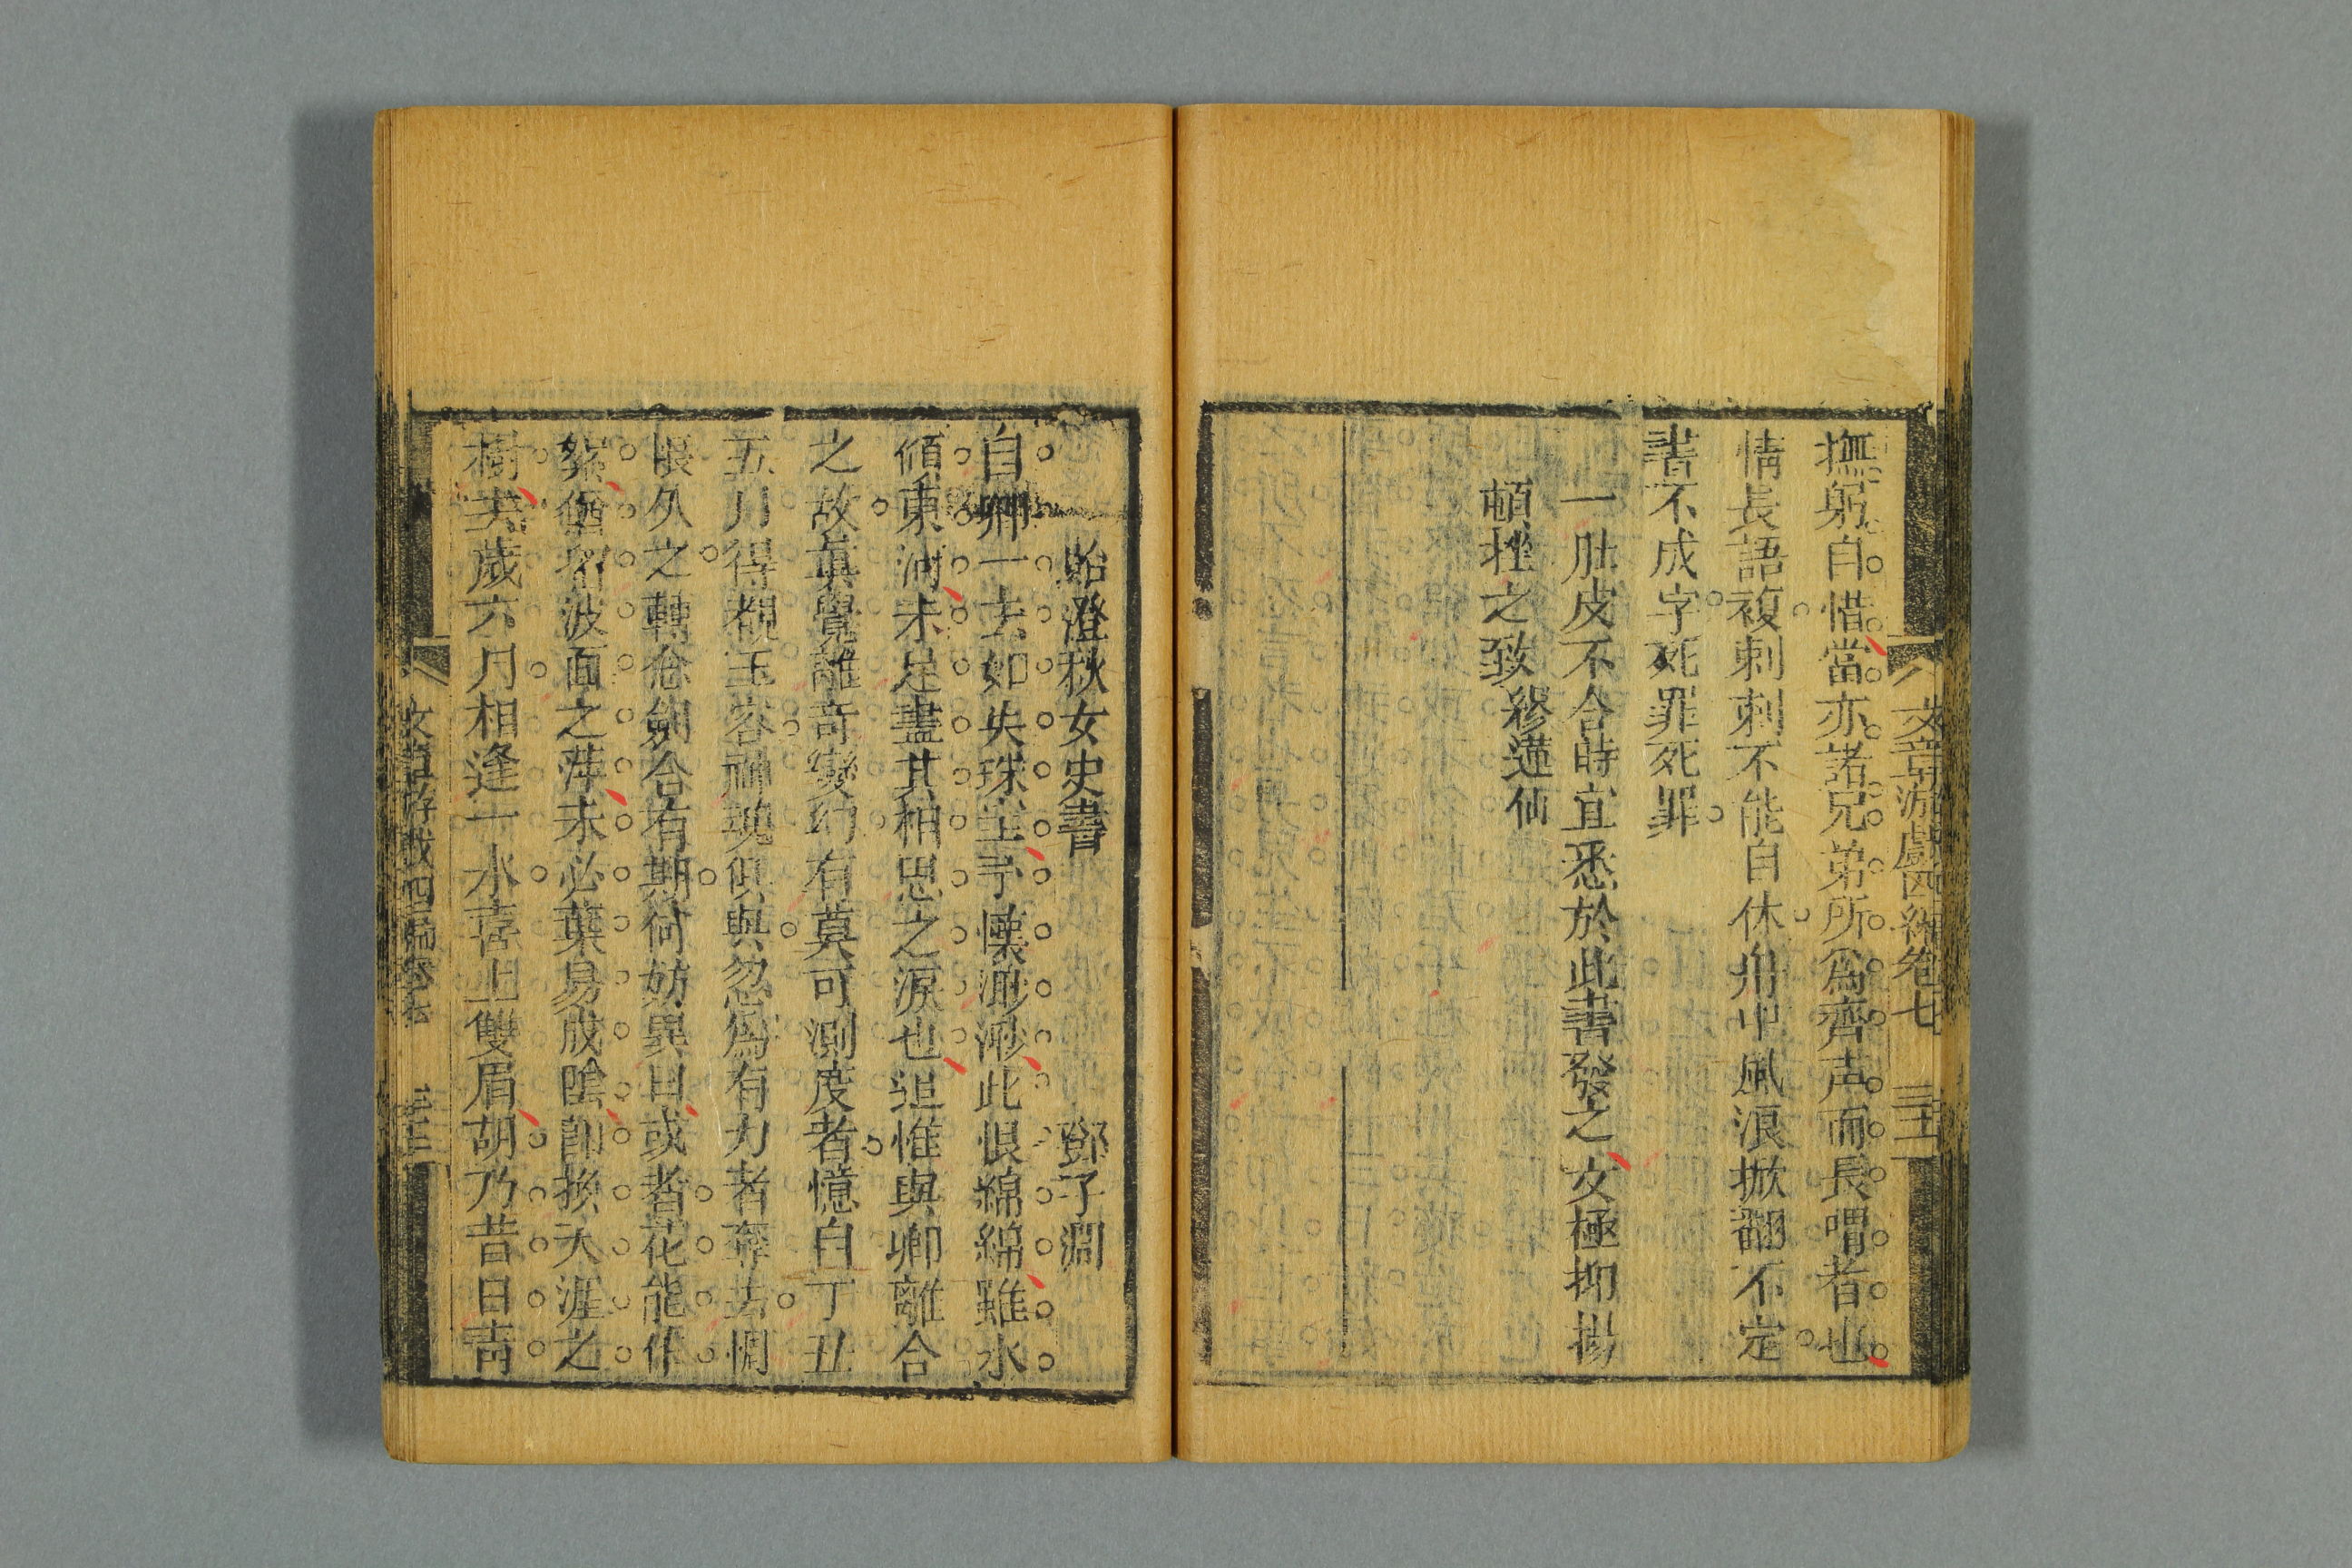 文章游戲四編卷七
撫躬自惜當亦諸兄弟所爲齊声而長喟者也
情長語複刺刺不能自休舟中風浪掀翻不定
書不成字死罪死罪
一肚皮不合時宜悉於此書發之文極抑揚
頓挫之致繆蓮仙
貽澄秋女史書 鄧子淵
自卿一去如失珠掌予懷渺渺此恨綿綿雖水
傾東河未足盡其相思之淚也追惟與卿離合
之故眞覺離奇變幻有莫可測度者憶自丁丑
五月得覩玉容神魂俱與忽爲有力者奪去惆
悵久之轉念劍合有期何妨異日或者花能作
絮猶留波面之萍未必葉易成陰卽換天涯之
樹芙歲六月相逢一水喜上雙眉胡乃昔日靑
文章游戲四編卷七